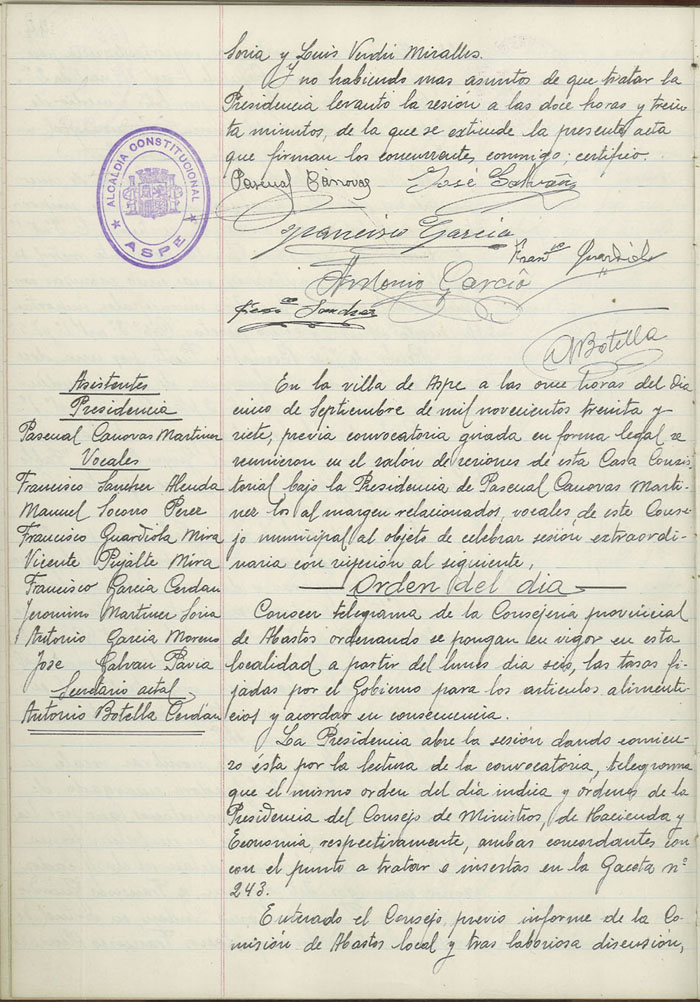 Soria y Luis Verdú Miralles.
Y no habiendo mas asuntos de que tratar la
Presidencia levantó la sesión a las doce horas y trein-
ta minutos, de la que se extiende la presente acta
que firman los concurrentes conmigo; certifico.
Pascual Cánovas José Galvañ
Francisco García
Franco Guardiola
Antonio García
Sanchez
A Botella
ALCALDIA CONSTITUCIONAL
ASPE
Asistentes
Presidencia
Pascual Canovas Martinez
Vocales
Francisco Sanchez Alenda
Manuel Socorro Perez
Francisco Guardiola Mira
Vicente Pujalte Mira
Francisco Garcia Cerdan
Jeronimo Martinez Soria
Antonio Garcia Moreno
Jose Galvan Pavia
Secretario actal
Antonio Botella Cerdán
En la villa de Aspe a las once horas del dia
cinco de Septiembre de mil novecientos treinta y
siete, previa convocatoria girada en forma legal se
reunieron en el salón de sesiones de esta Casa Consis-
torial bajo la Presidencia de Pascual Canovas Marti-
nez los al margen relacionados, vocales, de este Conse-
jo municipal al objeto de celebrar sesión extraordi-
naria con sujeción al siguiente,
Orden del dia
Conocer telegrama de la Consejeria provincial
de Abastos ordenando se pongan en vigor en esta
localidad a partir del lunes dia seis, las tasas fi-
jadas por el Gobierno para los articulos alimenti-
cios y acordar en consecuencia.
La Presidencia abre la sesión dando comien-
zo ésta por la lectura de la convocatoria, telegrama
que el mismo orden del día indica y órdenes de la
Presidencia del Consejo de Ministros, de Hacienda y
Economia, respectivamente, ambas concordantes con
con el punto a tratar e insertas en la Gaceta nº
243.
Enterado el Consejo, previo informe de la Co-
misión de Abastos local y tras laboriosa discusión,